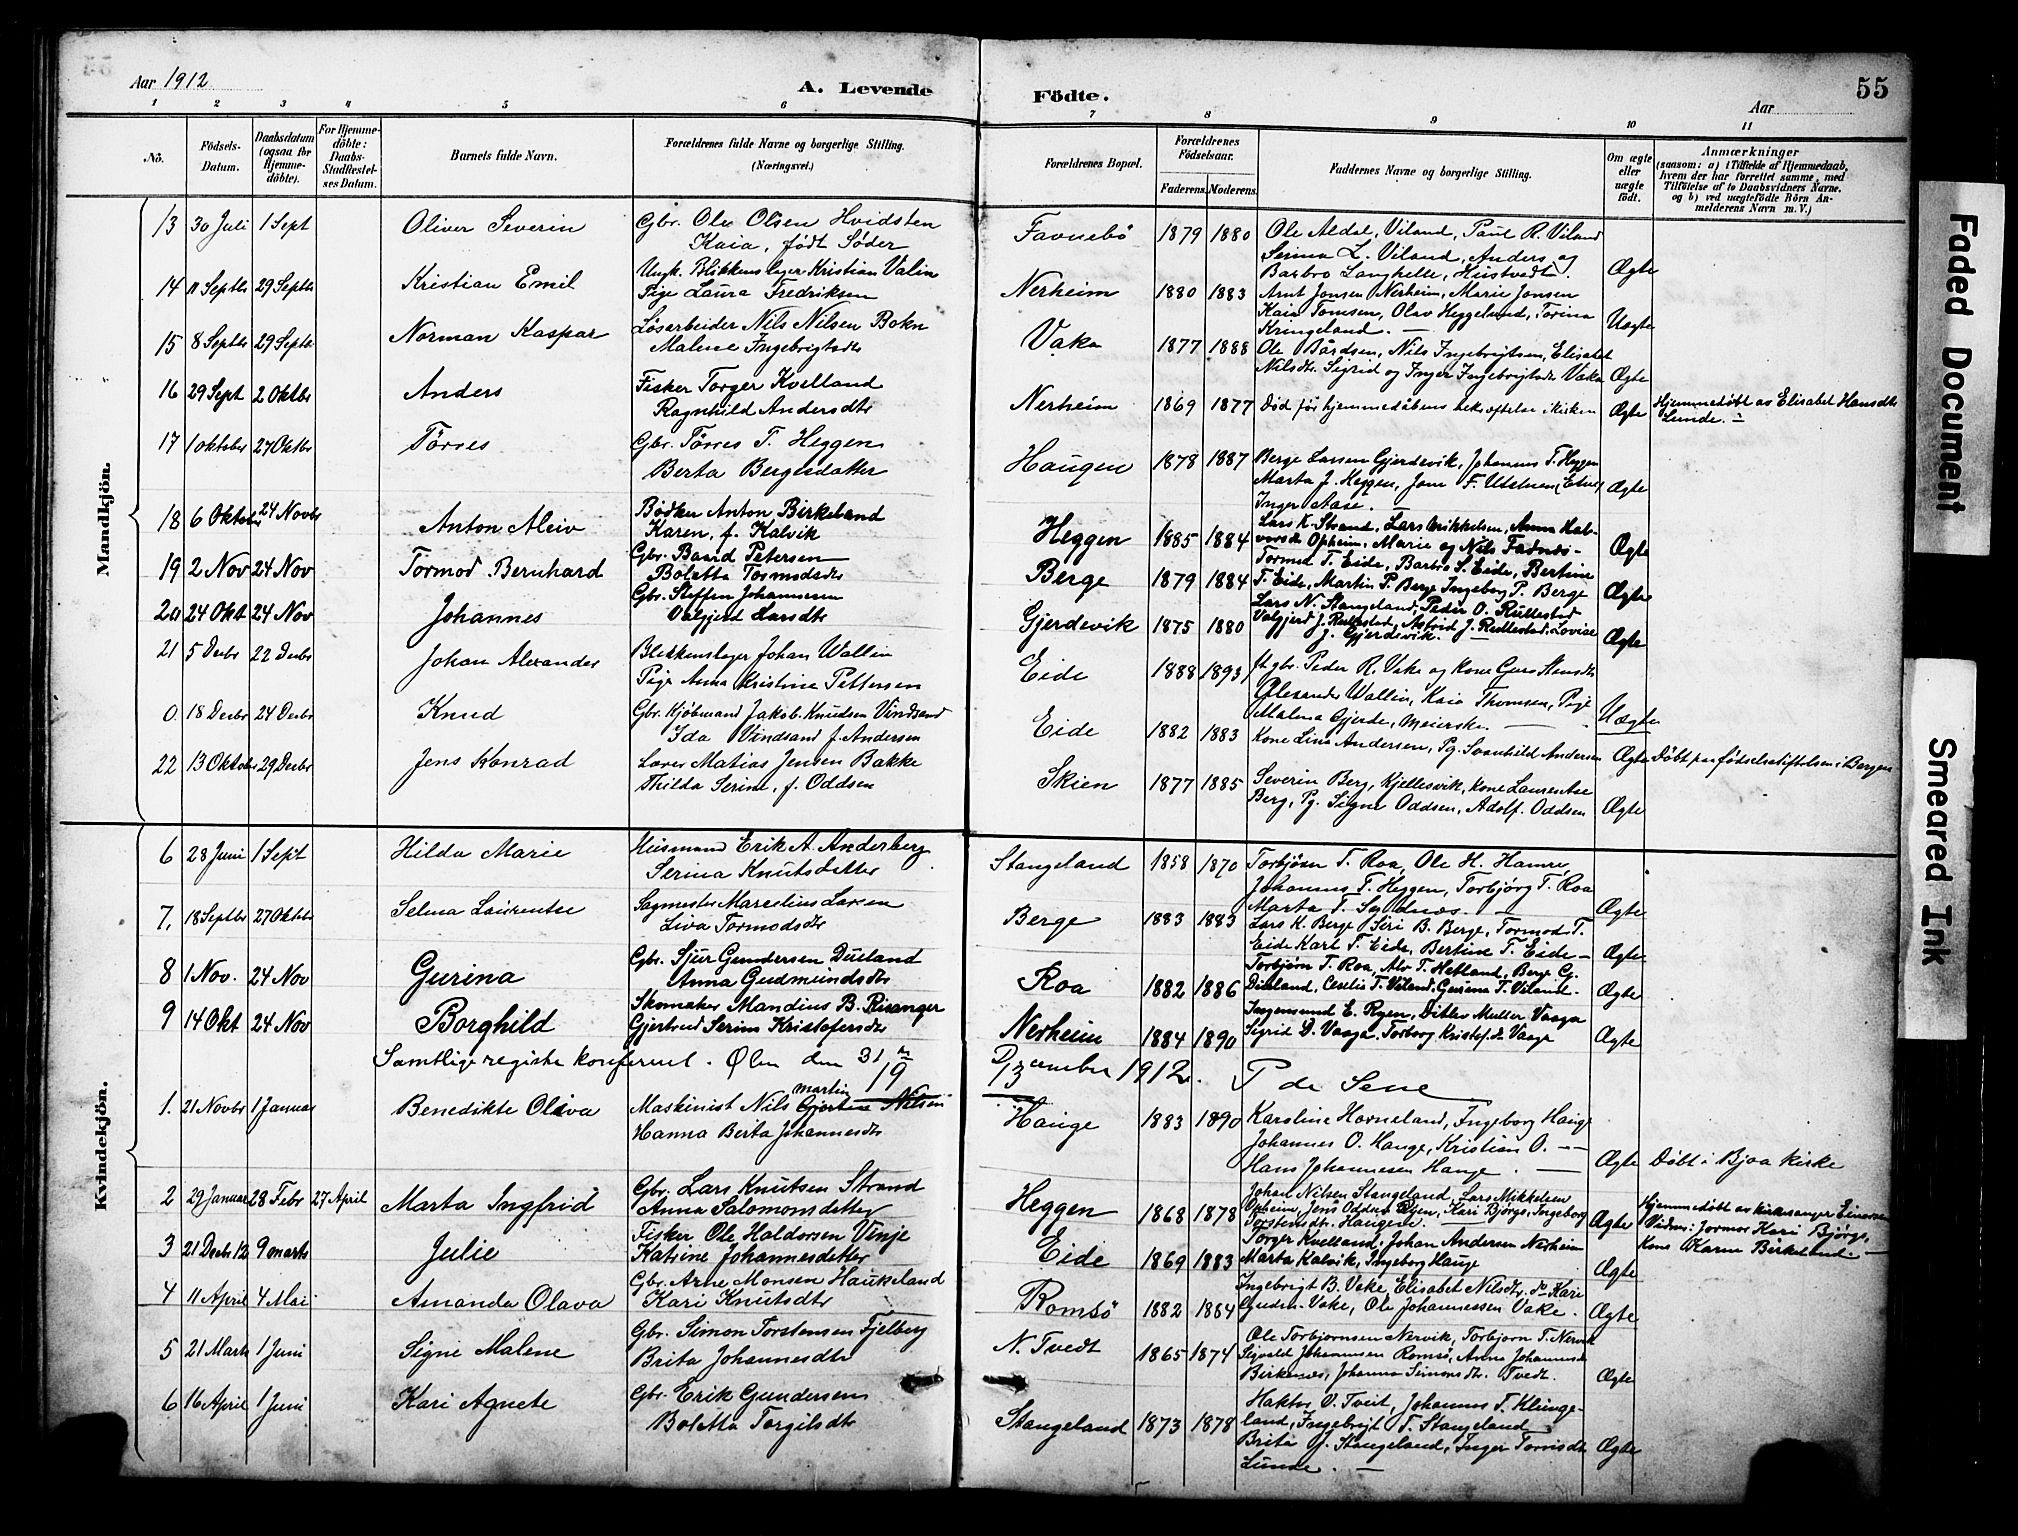 55
Aar 1912
A. Levende Födte.
Aar
1 2 3 4 5 6 7 8 9 10 11
No.
Födsels-Datum.
Daabsdatum (ogsaa for Hjemmedöbte).
For Hjemmedöbte: Daabs-Stadfæstelses Datum.
Barnets fulde Navn.
Forældrenes fulde Navne og borgerlige Stilling. (Næringsvei.)
Forældrenes Bopæl.
Forældrenes Födselsaar.
Faderens. Moderens.
Faddernes Navne og borgerlige Stilling.
Om ægte eller uægte födt.
Anmærkninger
(saasom: a) i Tilfælde af Hjemmedaab, hvem der har forrettet samme, med Tilföielse af to Daabsvidners Navne. og b) ved uægtefödte Börn Anmelderens Navn m. V.)
Mandkjön.
13 30 Juli 1 Sept Oliver Severin Gbr. Ole Olsen Hvidsten
Kaia, født Søder
Favnebø 1879 1880 Ole Aldal, Viland, Paul R. Viland
Serina L. Viland, Anders og
Barbro Langhelle, Hustvedt. Ægte
14 11 Septbr 29 Septbr Kristian Emil Ungk. Blikkenslager Kristian Valin
Pige Laura Fredriksen
Nerheim 1880 1883 Arnt Jonsen Nerheim, Marie Jonsen
Kaia Tomsen, Olav Heggelund, Torina
Kringeland. — Uægte
15 8 Septbr 29 Septbr Norman Kaspar Løsarbeider Nils Nilsen Bokn
Malene Ingebrigtsdtr
Vaka 1877 1888 Ole Bårdsen, Nils Ingebrigtsen, Elisabet
Nilsdtr. Sigrid og Inger Ingebrigtsdtr Vaka Ægte
16 29 Sept 2 Oktbr Anders Fisker Torger Kvelland
Ragnhild Andersdtr
Nerheim 1869 1877 Død før hjemmedåbens bekræftelse i kirken Ægte Hjemmedøbt av Elisabet Hansdtr
Lunde. —
17 1 Oktober 27 Oktbr Tørres Gbr. Tørres T. Heggen
Berta Bergesdatter
Haugen 1878 1887 Berge Larsen Gjerdevik, Johannes T. Heggen
Marta J. Heggen, Jone F. Utstuen (Etne)
Inger Aase. Ægte
18 6 Oktober 24 Novbr Anton Aleiv Bødker Anton Birkeland
Karen, f. Kalvik
Heggen 1885 1884 Lars K. Strand, Lars Mikkelsen, Anna Halvorsdtr Opheim, Marie og Nils Fadnes - Ægte
19 2 Nov 24 Nov Tormod Bernhard Gbr. Baard Petersen
Boletta Tormodsdtr
Berge 1879 1884 Tormod T. Eide, Barbro S. Eide, Bertine
T. Eide, Martin P. Berge Ingeborg P. Berge Ægte
20 24 Okt 24 Nov Johannes Gbr. Steffen Johannesen
Valgjerd Larsdtr
Gjerdevik 1875 1880 Lars N. Stangeland, Peder O. Rullestad
Valgjerd J. Rullestad, Astrid J. Rullestad. Lovise
J. Gjerdevik. Ægte
21 5 Decbr 22 Decbr Johan Alexander Blikkenslager Johan Wallin
Pige Anna Kristine Pettersen
Eide 1888 1893 fhgbr. Peder R. Vake og kone Guro Stensdtr
Alexander Wallin, Kaia Thomsen, Pige
Malena Gjerde, meierske. Uægte
0 18 Decbr 24 Decbr Knud Gbr. Kjøbmand Jakob Knudsen Vindsand
Ida Vindsand f. Andersen
Eide 1882 1883 Kone Lina Andersen, Pg. Svanhild Andersen Ægte Døbt paa fødselsstiftelsen i Bergen
22 13 Oktober 29 Decbr Jens Konrad Lærer Matias Jensen Bakke
Thilda Serine, f. Oddsen
Skien 1877 1885 Severin Berg, Kjellesvik, kone Laurentse
Berg, Pg. Signe Oddsen, Adolf Oddsen Ægte
Kvindekjön.
6 28 Juni 1 Sept Hilda Marie Husmand Erik A. Anderberg
Serina Knutsdatter
Stangeland 1858 1870 Torbjörn T. Roa, Ole H. Hamre,
Johannes T. Heggen, Torbjørg T. Roa
Marta T. Ægte
7. 18 Septbr 27 Oktbr Selma Laurentse Sagmester Marselius Larsen
Liva Tormodsdtr
Berge 1883 1883 Lars K. Berge Siri B. Berge, Tormod T.
Eide Karl T. Eide, Bertine T. Eide — Ægte
8 1 Nov. 24 Nov Gurina Gbr. Sjur Gundersen Dueland
Anna Gudmundsdtr
Roa 1882 1886 Torbjørn T. Roa, Alv T. Hetland, Berge G.
Dueland, Cecelie T. Viland, Gurena T. Viland. Ægte
9 14 Okt 24 Nov Borghild Skomaker Mandius B. Risanger
Gjertrud Serine Kristofersdtr
Nerheim 1884 1890 Ingemund E. Ryen, Ditlev Muller Vaaga
Sigrid D. Vaaga, Torborg Kristofdtr Vaage Ægte
Samtlige registre konfereret. Ølen den 31te December 1912. P de Seue
1913
1. 21 Novbr 1 Januar Benedikte Oliva Maskinist Nils Martin Gjertsen Nilsen
Hanna Berta Johannesdtr
Hauge 1883 1890 Karoline Horneland, Ingeborg Hauge
Johannes O. Hauge, Kristian O. —
Hans Johannesen Hauge. Ægte Døbt i Bjoa Kirke
2 29 Januar 28 Febr 27 April Marta Ingfrid Gbr. Lars Knutsen Strand
Anna Salomonsdatter
Heggen 1868 1878 Johan Nilsen Stangeland, Lars Mikkelsen
Opheim, Jens Oddsen Ryen, Kari Bjørge, Ingeborg
Torstensdtr. Haugene. Ægte Hjemmedøbt av kirkesanger Einarsen
Vidner: Jormor Kari Bjørge,
kone Karen Birkeland. —
3 21 Decbr 12 9 marts Julie Fisker Ole Haldorsen Vinje
Katrine Johannesdatter
Eide 1869 1883 Torger Kvelland, Johan Andersen Nerheim
Marta Kalvik, Ingeborg Hauge Ægte
4 11 April 4 Mai Amanda Olava Gbr. Arne Monsen Haukeland
Kari Knutsdtr
Romsö 1882 1884 Ingebrigt B. Vake, Elisabet Nilsdtr. do Kari
Gudm. Vake, Ole Johannessen Vake. Ægte
5 21 Marts 1 Juni Signe Malene Gbr. Simon Torstensen Fjelberg
Brita Johannesdtr
N. Tvedt 1865 1874 Ole Torbjørnsen Nervik, Torbjørn T. Nervik
Sigvald Johannesen Romsö, Anna Johannesdtr
Birkenes, Johanna Simonsdtr. Tvedt. Ægte
6 16 April 1 Juni Kari Agnete Gbr. Erik Gundersen
Boletta Torgilsdtr
Stangeland 1873 1878 Haktor O. Tveit, Johannes T. Klungeland, Ingebrigt T. Stangeland
Brita J. Stangeland, Inger Torrisdtr
Lunde. — Ægte
Faded Document
Smeared Ink